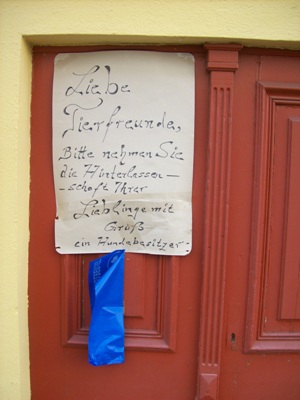 Liebe
Tierfreunde,
Bitte nehmen Sie
die Hinterlassen-
-schaft Ihrer
Lieblinge mit
Gruß
ein Hundebesitzer